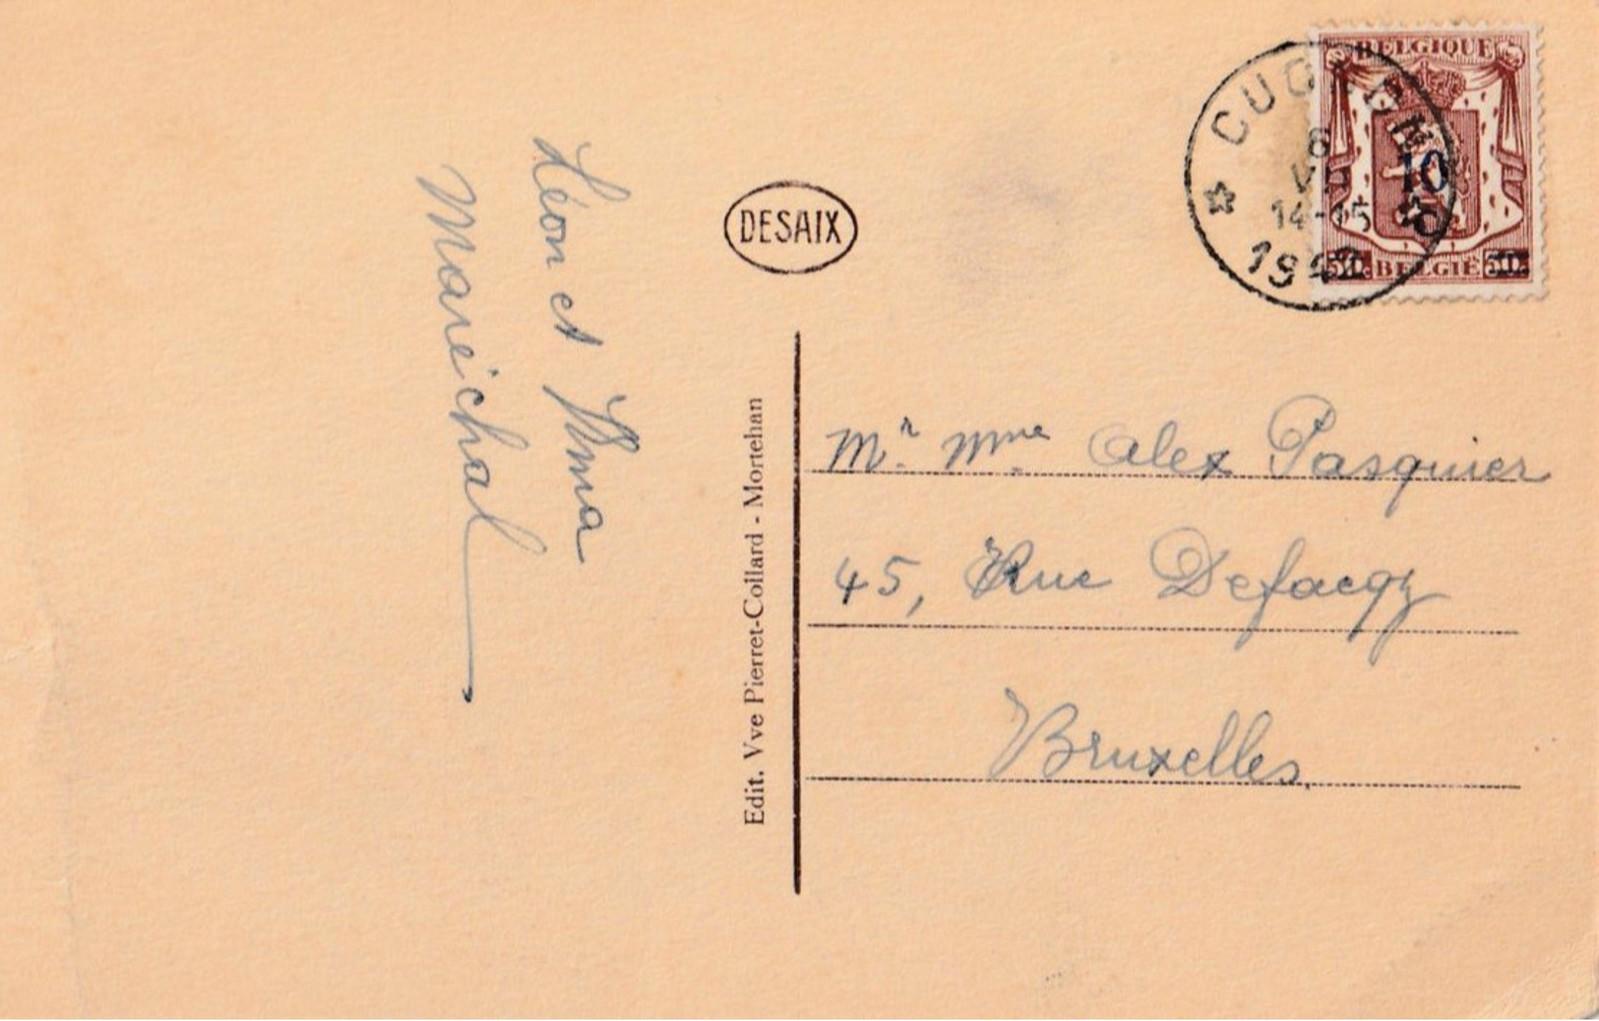 Léon et Irma
Maréchal
DESAIX
Edit. Vve Pierret-Collard - Mortehan
CUGNON
6
14-15
BELGIQUE
10 c
BELGIË
Mr. Mme Alex Pasquier
45, Rue Defacqz
Bruxelles